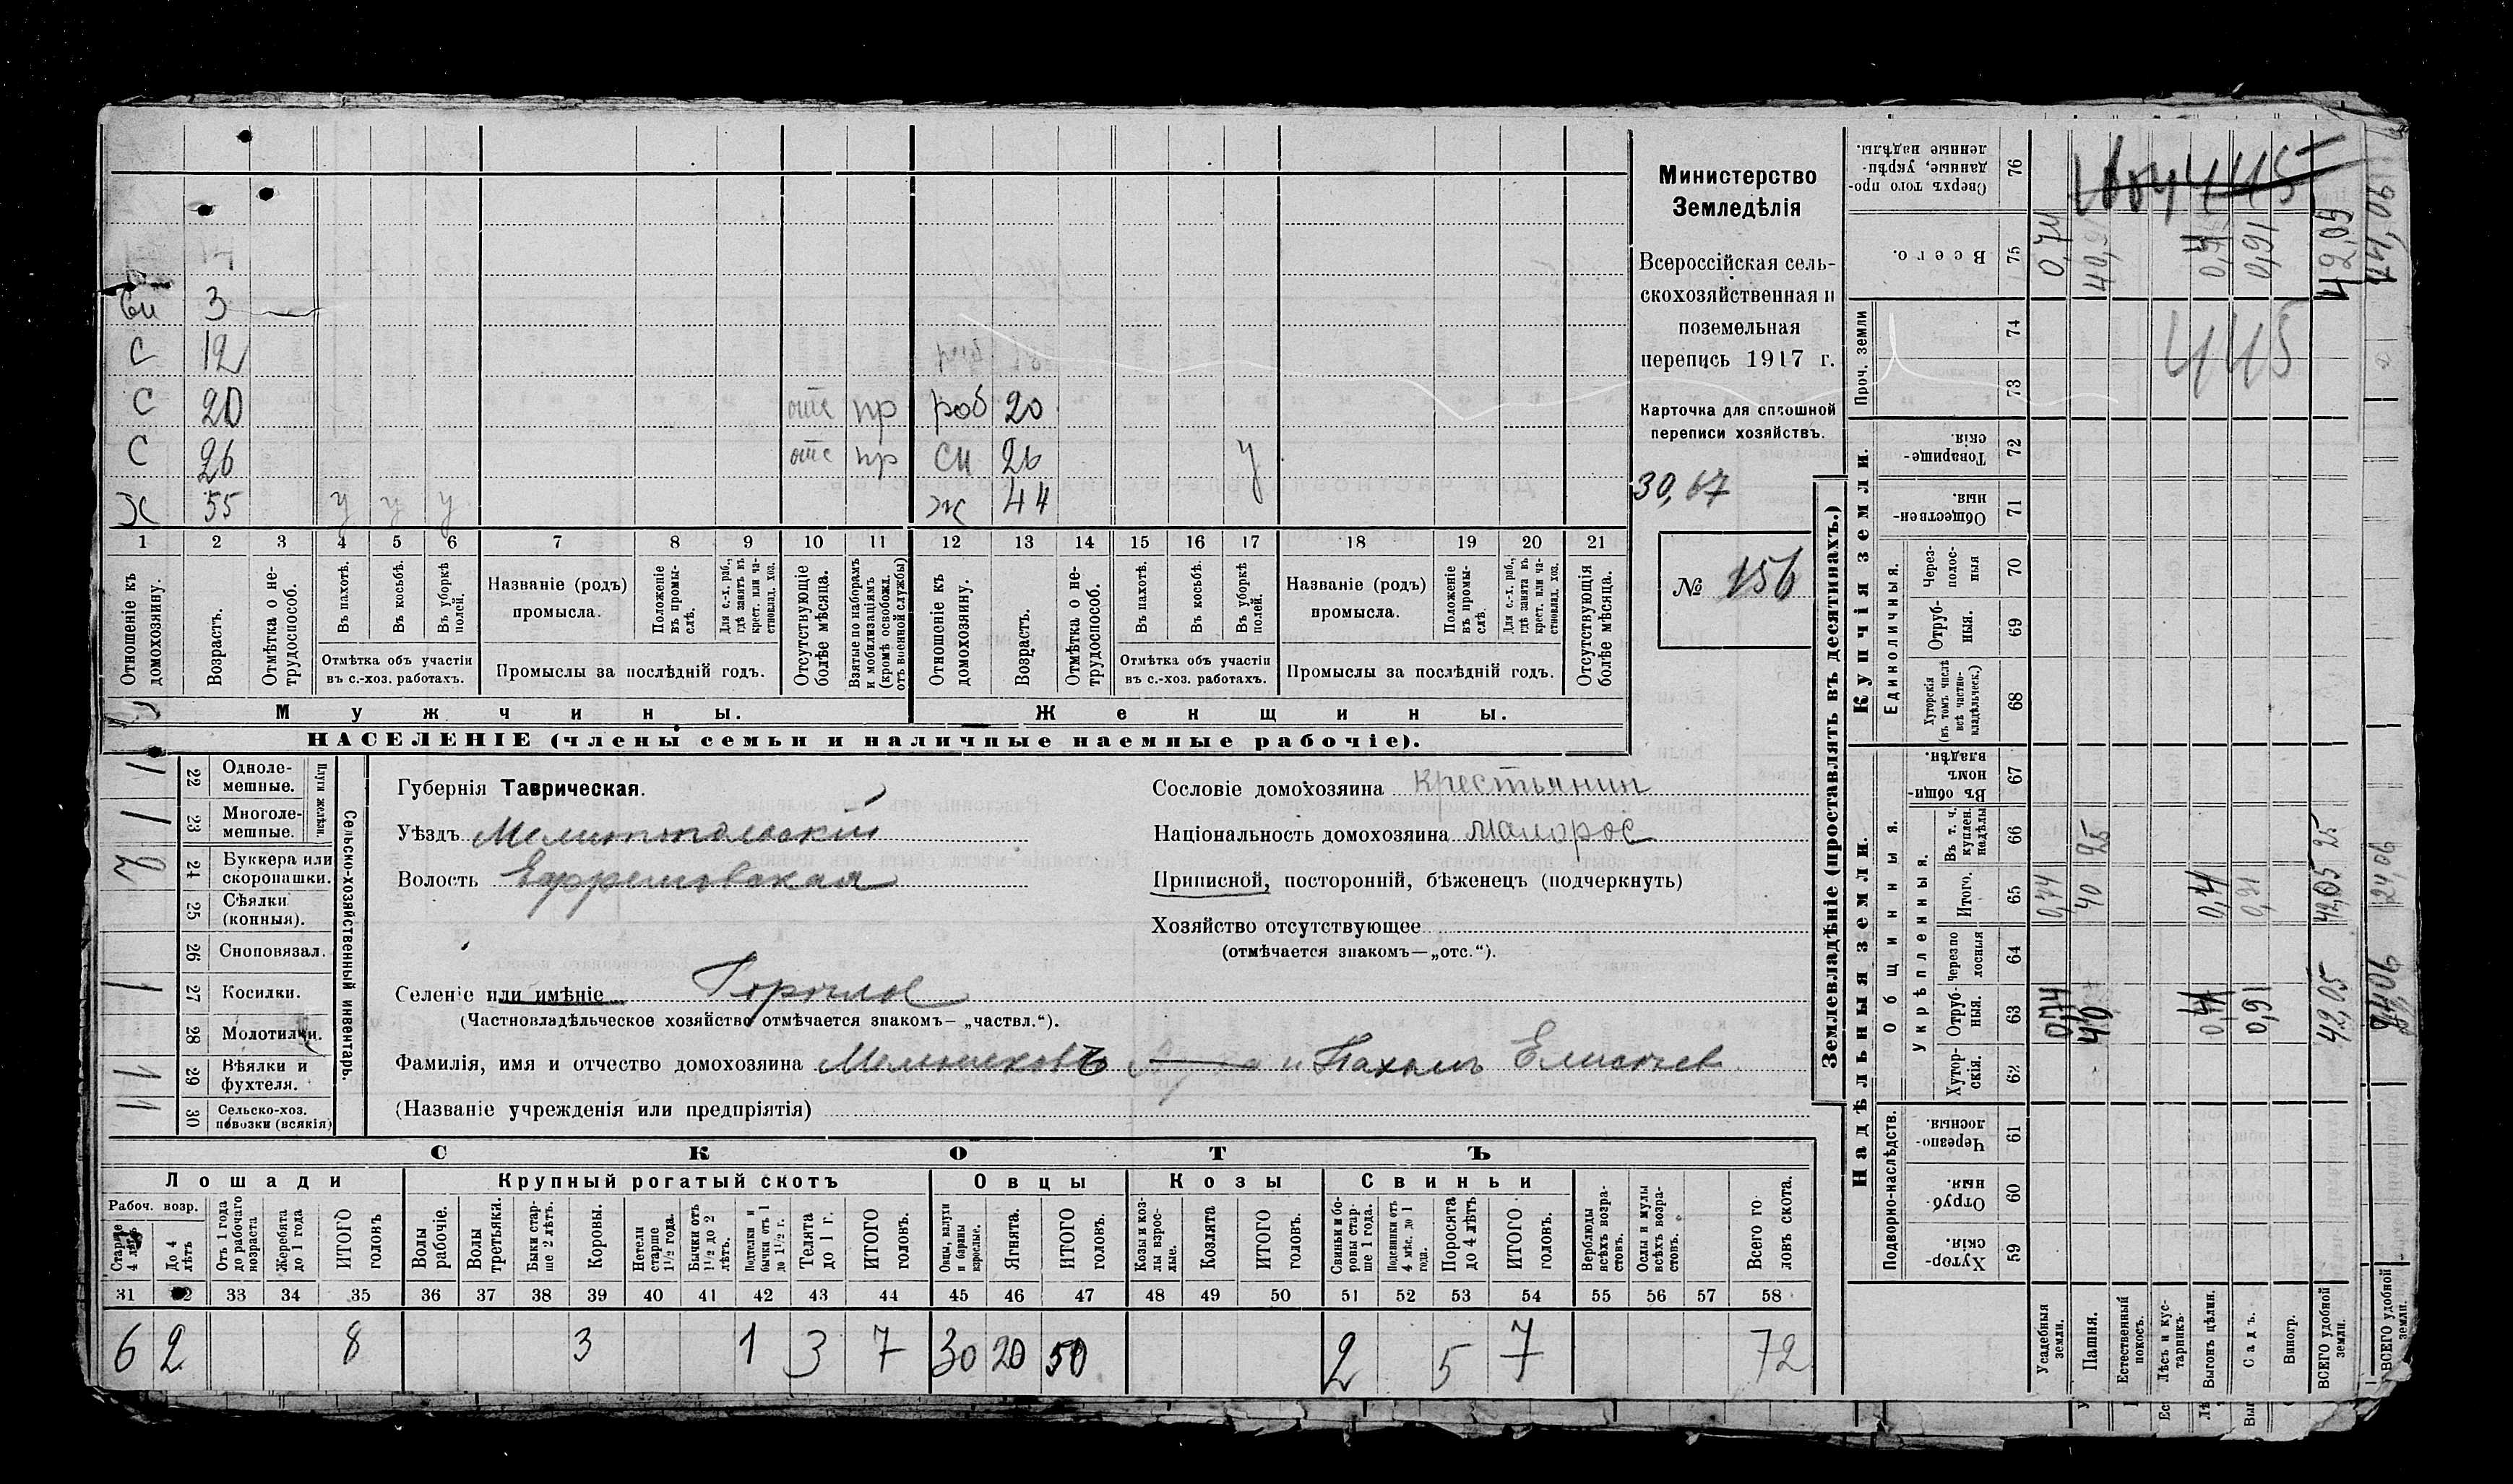 Министерство
Земледѣлія
Всероссійская сель-
скохозяйственная и
поземельная
перепись 1917 г.
Карточка для сплошной
переписи хозяйствъ.
30,67
№ 156
си 3
с 12
с 20 отс пр роб 20
с 26 отс пр си 26 у
х 55 у у у ж 44
1 2 3 4 5 6 7 8 9 10 11 12 13 14 15 16 17 18 19 20 21
Отношеніе къ домохозяину.
Возрастъ.
Отмѣтка о не-трудоспособ.
Въ пахотѣ.
Въ косьбѣ.
Въ уборкѣ полей.
Отмѣтка объ участіи
въ с.-хоз. работахъ.
Названіе (родъ)
промысла.
Положеніе въ промы-слѣ.
Для с.-х. раб., гдѣ занятъ въ крест. или ча-стновлад. хоз.
Промыслы за послѣдній годъ.
Отсутствующіе болѣе мѣсяца.
Взятые по наборамъ и мобилизаціямъ (кромѣ освобожд. отъ военной службы)
Отношеніе къ домохозяину.
Возрастъ.
Отмѣтка о не-трудоспособ.
Въ пахотѣ.
Въ косьбѣ.
Въ уборкѣ полей.
Отмѣтка объ участіи
въ с.-хоз. работахъ.
Названіе (родъ)
промысла.
Положеніе въ промы-слѣ.
Для с.-х. раб., гдѣ занята въ крест. или ча-стновлад. хоз.
Промыслы за послѣдній годъ.
Отсутствующія болѣе мѣсяца.
Мужчины. Женщины.
НАСЕЛЕНІЕ (члены семьи и наличные наемные рабочіе).
Сельско-хозяйственный инвентарь.
Плуги желѣзн.
22 Одноле-мешные. 1
23 Многоле-мешные. 1
24 Буккера или скоропашки. 2
25 Сѣялки (конныя).
26 Сноповязал.
27 Косилки. 1
28 Молотилки.
29 Вѣялки и фухтеля. 1
30 Сельско-хоз. повозки (всякія) 1
Губернія Таврическая.
Уѣздъ Мелитопольскій
Волость Ефремовская
Селеніе или имѣніе Горѣлое
(Частновладѣльческое хозяйство отмѣчается знакомъ— „частвл.“).
Сословіе домохозяина крестьянин
Національность домохозяина малорос
Приписной, посторонній, бѣженецъ (подчеркнуть)
Хозяйство отсутствующее
(отмѣчается знакомъ—„отс.“).
Фамилія, имя и отчество домохозяина Мельниковъ и Пахомъ Елисеев
(Названіе учрежденія или предпріятія)
СКОТЪ
Лошади Крупный рогатый скотъ Овцы Козы Свиньи
Рабоч. возр.
Старше 4 лѣтъ
До 4 лѣтъ
Отъ 1 года до рабочаго возраста
Жеребята до 1 года
ИТОГО головъ
Волы рабочіе.
Волы третьяки.
Быки стар-ше 2 лѣтъ.
Коровы.
Нетели старше 1½ года.
Бычки отъ 1½ до 2 лѣтъ.
Подтелки и бычки отъ 1 до 1½ г.
Телята до 1 г.
ИТОГО головъ.
Овцы, валухи и бараны взрослые.
Ягнята.
ИТОГО головъ.
Козы и коз-лы взрос-лые.
Козлята
ИТОГО головъ.
Свиньи и бо-ровы стар-ше 1 года.
Подсвинки отъ 4 мѣс. до 1 года.
Поросята до 4 мѣс.
ИТОГО головъ.
Верблюды всѣхъ возра-стовъ.
Ослы и мулы всѣхъ возра-стовъ.
Всего го-ловъ скота.
31 32 33 34 35 36 37 38 39 40 41 42 43 44 45 46 47 48 49 50 51 52 53 54 55 56 57 58
6 2 8 3 1 3 7 30 20 50 2 5 7 72
Землевладѣніе (проставлять въ десятинахъ.)
Надѣльныя земли. Купчія земли. Проч. земли
Подворно-наслѣдств.
Общинныя.
Укрѣпленныя.
Единоличныя.
59 Хутор-скія.
60 Отруб-ныя.
61 Черезпо-лосныя.
62 Хутор-скія.
63 Отруб-ныя. 0,74 40 0,4 0,91 42,05
64 Черезпо-лосныя
65 Итого. 0,74 40 0,4 0,91 42,05
66 Въ т. ч. куплен. надѣлы 25 25
67 Въ общин-номъ владѣн.
68 Хуторскія (въ томъ числѣ всѣ частно-владѣльческ.)
69 Отруб-ныя.
70 Через-полос-ныя
71 Обществен-ныя.
72 Товарище-скія.
73
74 445
75 Всего. 0,74 0,4 0,91 42,05
76 Сверхъ того про-данные, укрѣп-ленные надѣлы.
Усадебныя земли.
Пашня.
Естественный покосъ.
Лѣсъ и кус-тарникъ.
Выгонъ цѣлин.
Садъ.
Виногр.
ВСЕГО удобной земли.
ВСЕГО удобной земли.
24,06